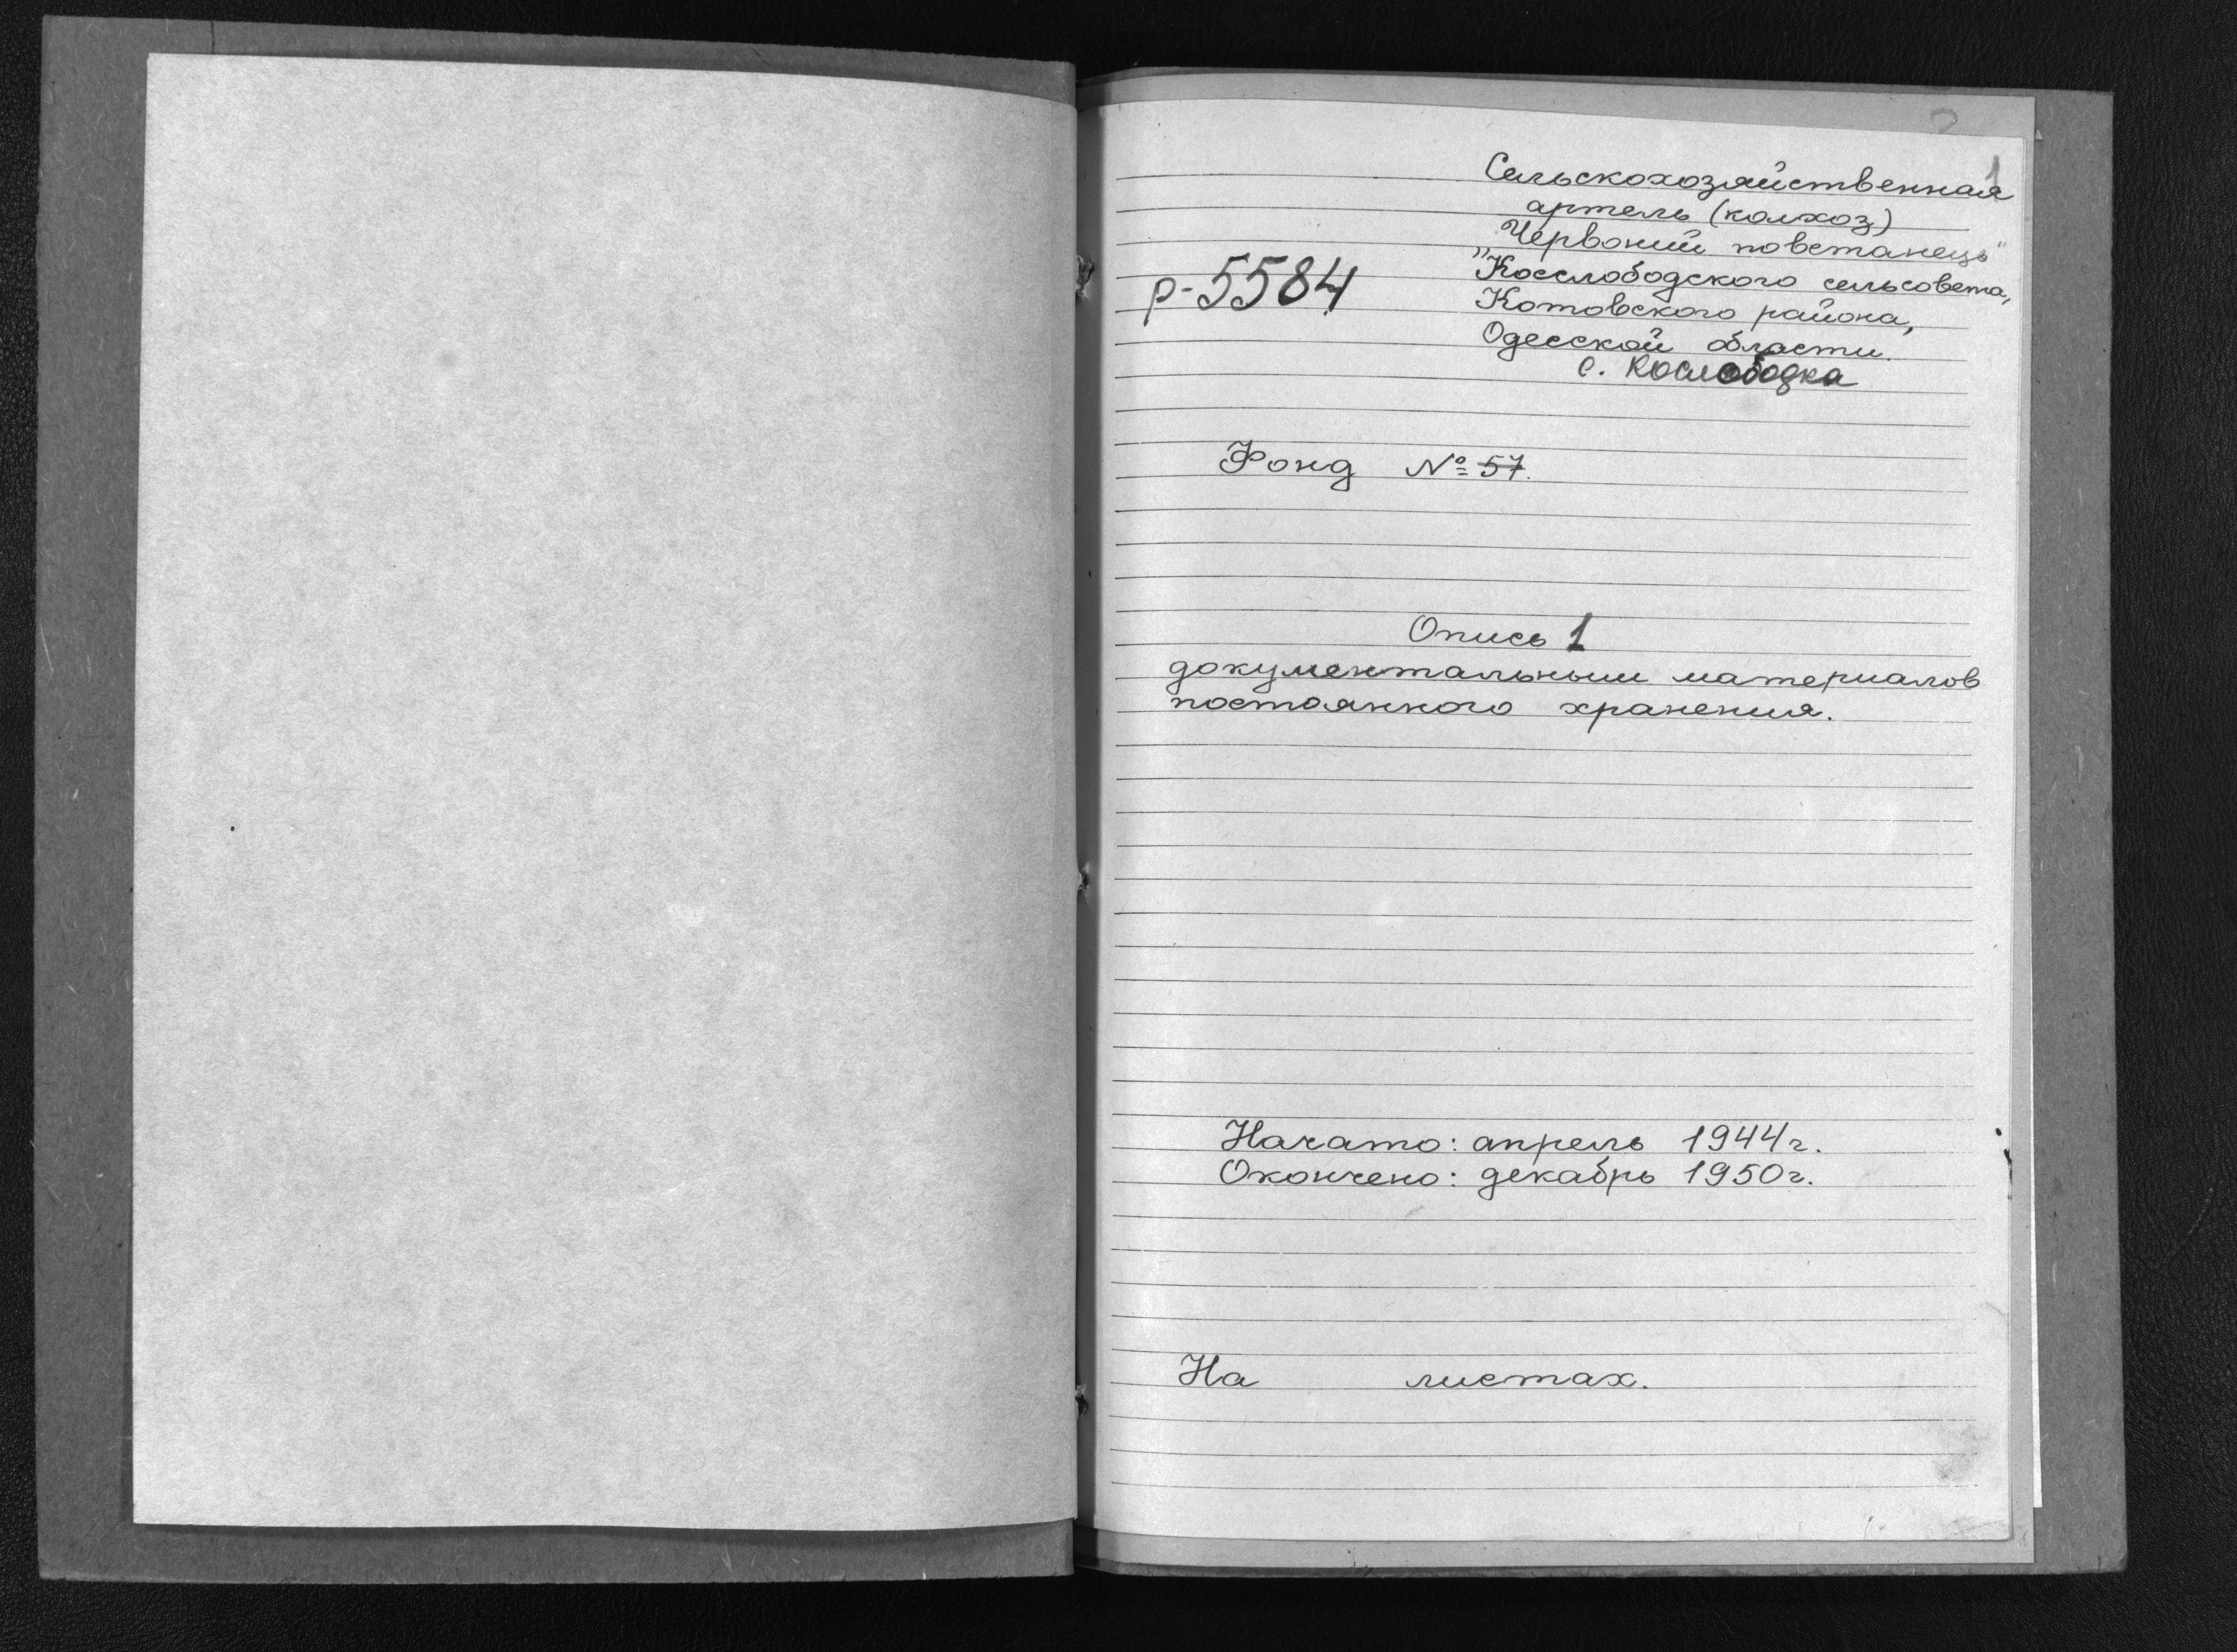 2
1
Сельскохозяйственная
артель (колхоз)
"Червоний повстанець"
Косслободского сельсовета,
р-5584
Котовского района,
Одесской области.
с. Кослободка
Фонд № 57.
Опись 1
документальныи материалов
постоянного хранения.
Начато: апрель 1944 г.
Окончено: декабрь 1950 г.
На листах.